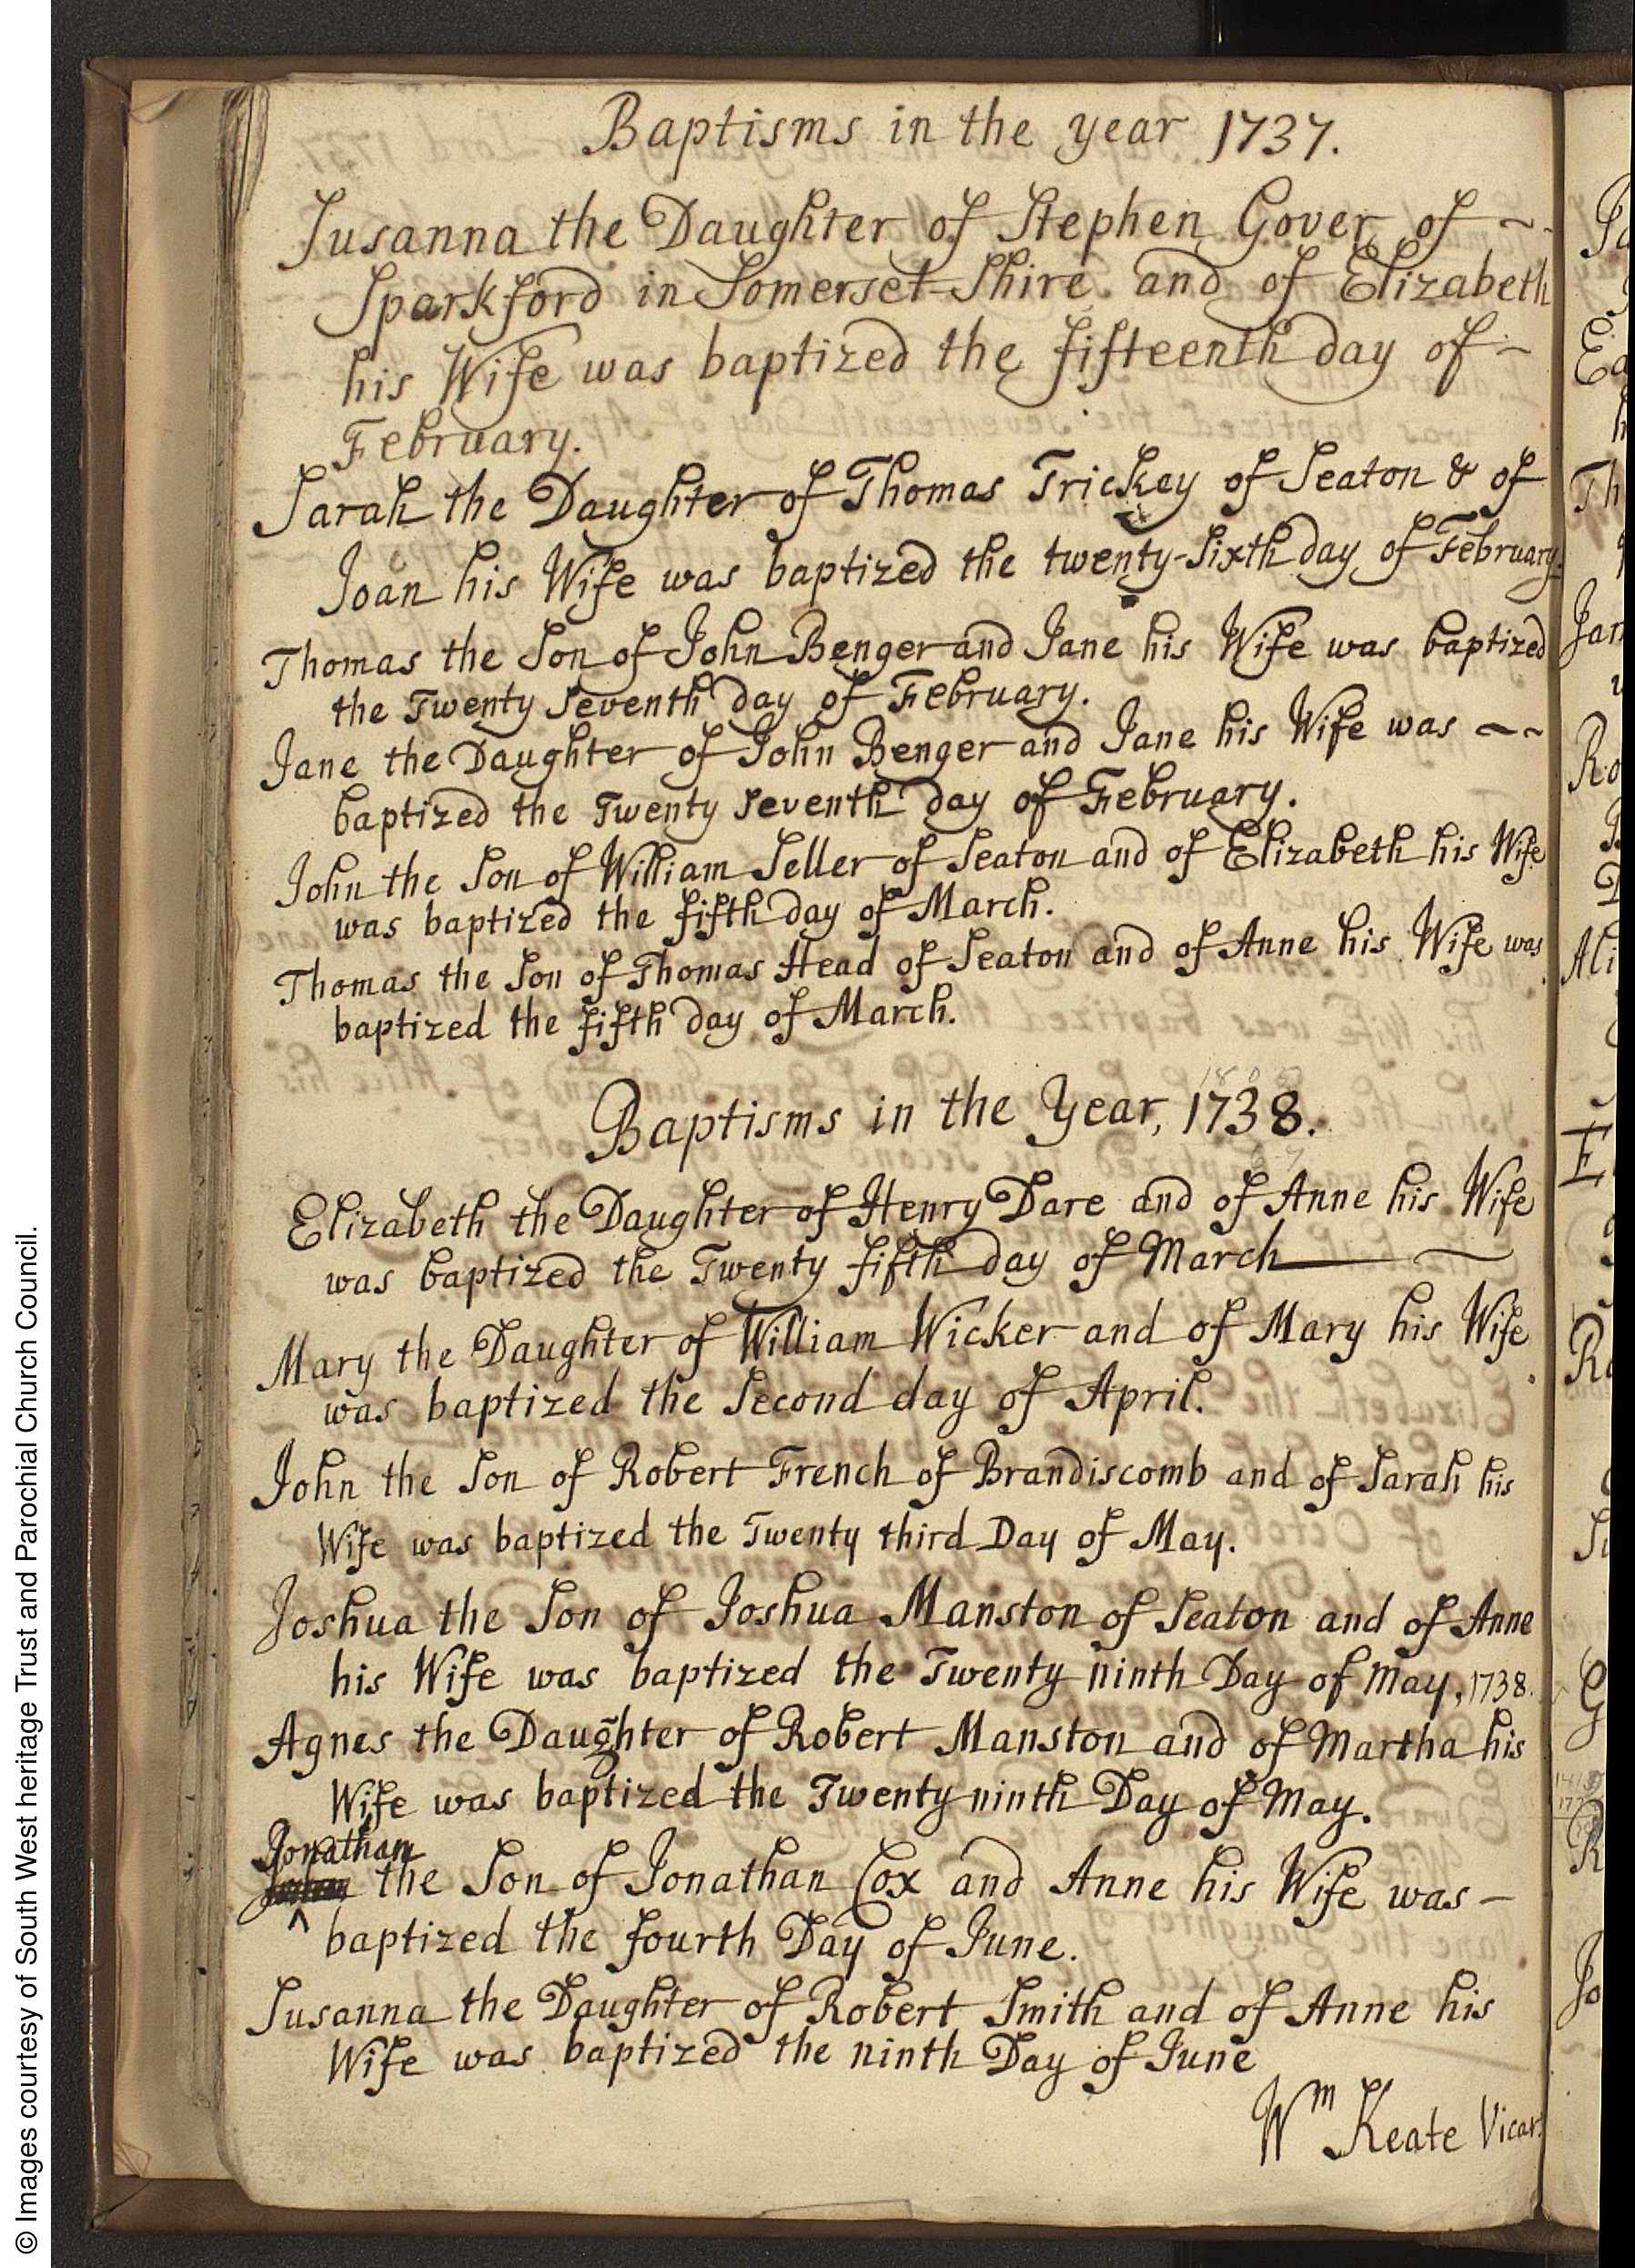 Baptisms in the year 1737.
Susanna the Daughter of Stephen Gover of
Sparkford in Somerset-Shire and of Elizabeth
his Wife was baptized the fifteenth day of
February.
Sarah the Daughter of Thomas Trickey of Seaton & of
Joan his Wife was baptized the twenty-Sixth day of February.
Thomas the Son of John Benger and Jane his Wife was baptized
the Twenty Seventh day of February.
Jane the Daughter of John Benger and Jane his Wife was
baptized the Twenty Seventh day of February.
John the Son of William Seller of Seaton and of Elizabeth his Wife
was baptized the fifth day of March.
Thomas the Son of Thomas Head of Seaton and of Anne his Wife was
baptized the fifth day of March.
Baptisms in the Year, 1738.
Elizabeth the Daughter of Henry Dare and of Anne his Wife
was baptized the Twenty fifth day of March
Mary the Daughter of William Wicker and of Mary his Wife
was baptized the Second day of April.
John the Son of Robert French of Brandiscomb and of Sarah his
Wife was baptized the Twenty third Day of May.
Joshua the Son of Joshua Manston of Seaton and of Anne
his Wife was baptized the Twenty ninth Day of May, 1738.
Agnes the Daughter of Robert Manston and of Martha his
Wife was baptized the Twenty ninth Day of May.
Jonathan
the Son of Jonathan Cox and Anne his Wife was
baptized the fourth Day of June.
Susanna the Daughter of Robert Smith and of Anne his
Wife was baptized the ninth Day of June
Wm Keate Vicar.
© Images courtesy of South West heritage Trust and Parochial Church Council.